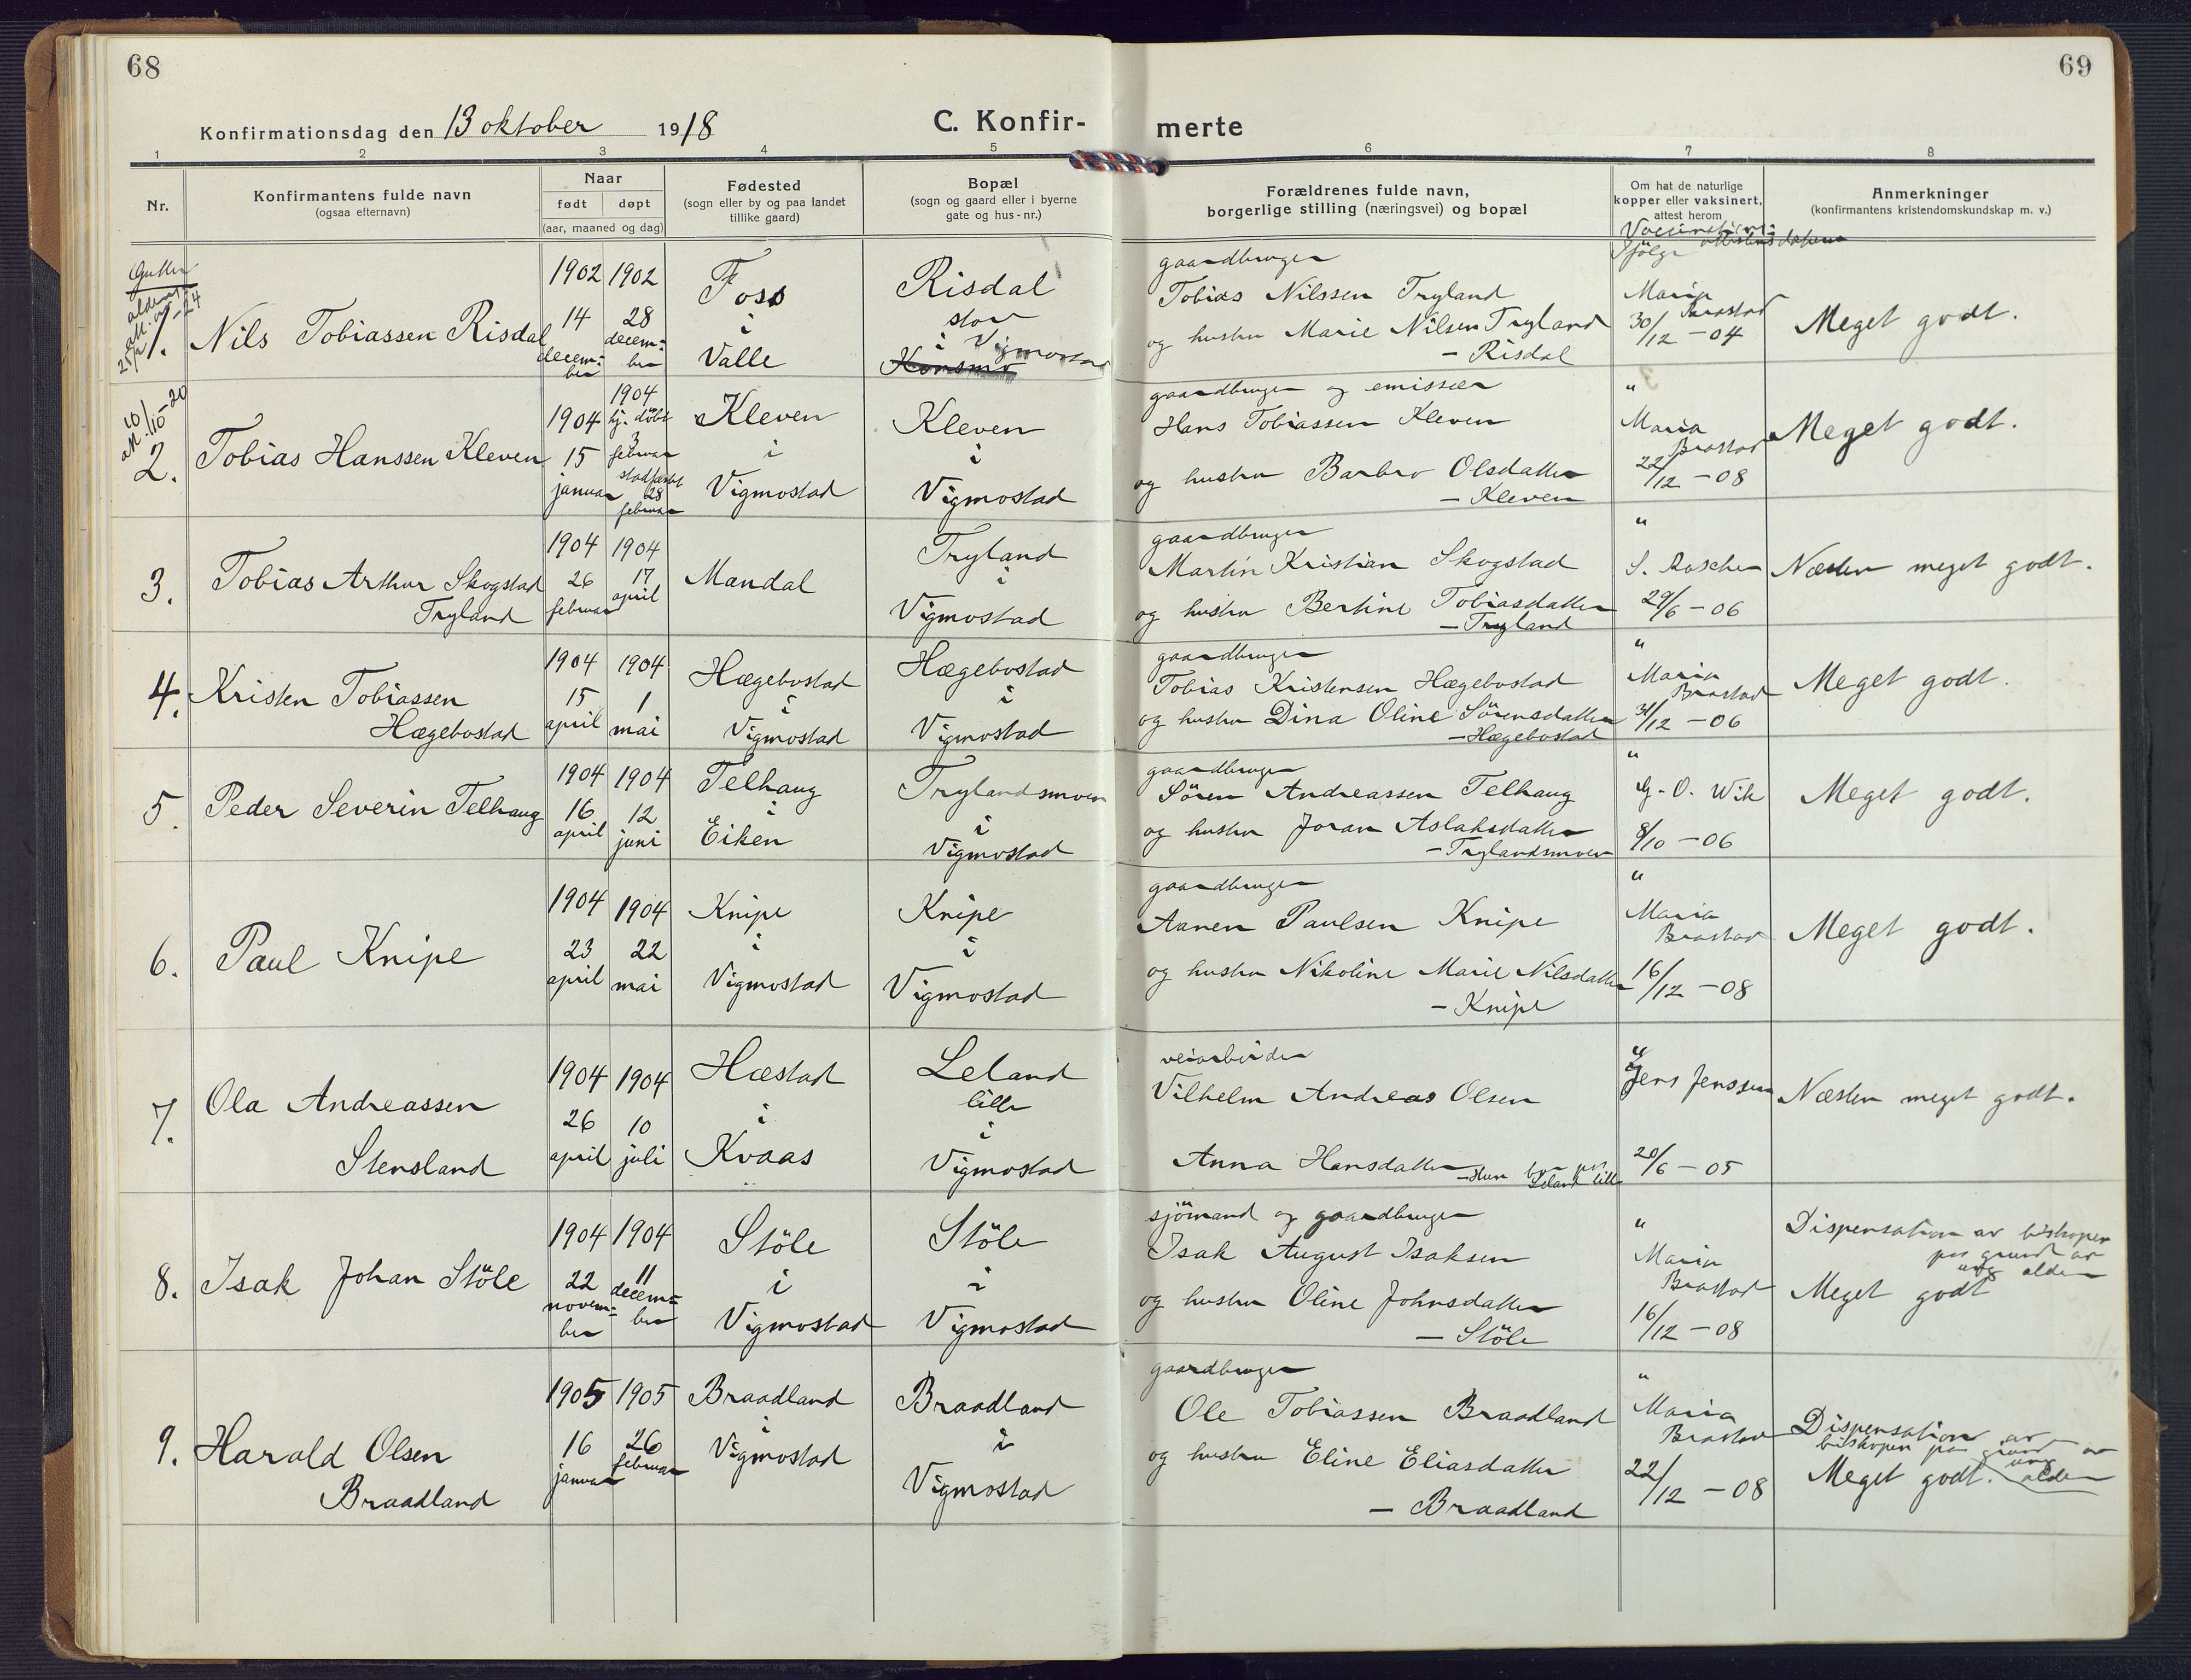 68
69
Konfirmationsdag den 13 oktober 1918
C. Konfir-
merte
1 2 3 4 5 6 7 8
Nr.
Konfirmantens fulde navn
(ogsaa efternavn)
Naar
født døpt
(aar, maaned og dag)
Fødested
(sogn eller by og paa landet
tillike gaard)
Bopæl
(sogn og gaard eller i byerne
gate og hus-nr.)
Forældrenes fulde navn,
borgerlige stilling (næringsvei) og bopæl
Om hat de naturlige
kopper eller vaksinert,
attest herom
Anmerkninger
(konfirmantens kristendomskundskap m. v.)
Gutter
1.
Nils Tobiassen Risdal
1902
14
decem-
ber
1902
28
decem-
ber
Foss
i
Valle
Risdal
stor
i Vigmostad
Konsmo
gaardbruger
Tobias Nilssen Tryland
og hustru Marie Nilsen Tryland
— Risdal
Maria
Brastad
30/12 — 04
Meget godt.
att. 10/10-20
2.
Tobias Hanssen Kleven
1904
15
januar
1904
hj. døbt
3
februar
stadfæstet
28
februar
Kleven
i
Vigmostad
Kleven
i
Vigmostad
gaardbruger og emissær
Hans Tobiassen Kleven
og hustru Barbro Olsdatter
— Kleven
"
Maria
Brastad
22/12 — 08
Meget godt.
3.
Tobias Arthur Skogstad
Tryland
1904
26
februar
1904
17
april
Mandal
Tryland
i
Vigmostad
gaardbruger
Martin Kristian Skogstad
og hustru Bertine Tobiasdatter
— Tryland
"
29/6 — 06
Næsten meget godt.
4.
Kristen Tobiassen
Hægebostad
1904
15
april
1904
1
mai
Hægebostad
i
Vigmostad
Hægebostad
i
Vigmostad
gaardbruger
Tobias Kristensen Hægebostad
og hustru Dina Oline Sörensdatter
— Hægebostad
"
Maria
Brastad
31/12 — 06
Meget godt.
5.
Peder Severin Telhaug
1904
16
april
1904
12
juni
Telhaug
i
Eiken
Trylandsmoen
i
Vigmostad
gaardbruger
Sören Andreassen Telhaug
og hustru Joran Aslaksdatter
— Trylandsmoen
"
G. O. Wik
8/10 — 06
Meget godt.
6.
Paul Knipe
1904
23
april
1904
22
mai
Knipe
i
Vigmostad
Knipe
i
Vigmostad
gaardbruger
Aanen Paulsen Knipe
og hustru Nikoline Marie Nilsdatter
— Knipe
"
Maria
Brastad
16/12 — 08
Meget godt.
7.
Ola Andreassen
Stensland
1904
26
april
1904
10
juli
Hæstad
i
Kvaas
Leland
lille
i
Vigmostad
veiarbeider
Vilhelm Andreas Olsen
Anna Hansdatter — Hun bor paa
Leland lille
"
Jens Jenssen
20/6 — 05
Næsten meget godt.
8.
Isak Johan Stöle
1904
22
novem-
ber
1904
11
decem-
ber
Stöle
i
Vigmostad
Stöle
i
Vigmostad
sjömand og gaardbruger
Isak August Isaksen
og hustru Oline Johnsdatter
— Stöle
"
Maria
Brastad
16/12 — 08
Dispensation av biskopen
paa grund av
ung alder
Meget godt
9.
Harald Olsen
Braadland
1905
16
januar
1905
26
februar
Braadland
i
Vigmostad
Braadland
i
Vigmostad
gaardbruger
Ole Tobiassen Braadland
og hustru Eline Eliasdatter
— Braadland
"
Maria
Brastad
22/12 — 08
Dispensation av
biskopen paa grund av
ung
alder
Meget godt.